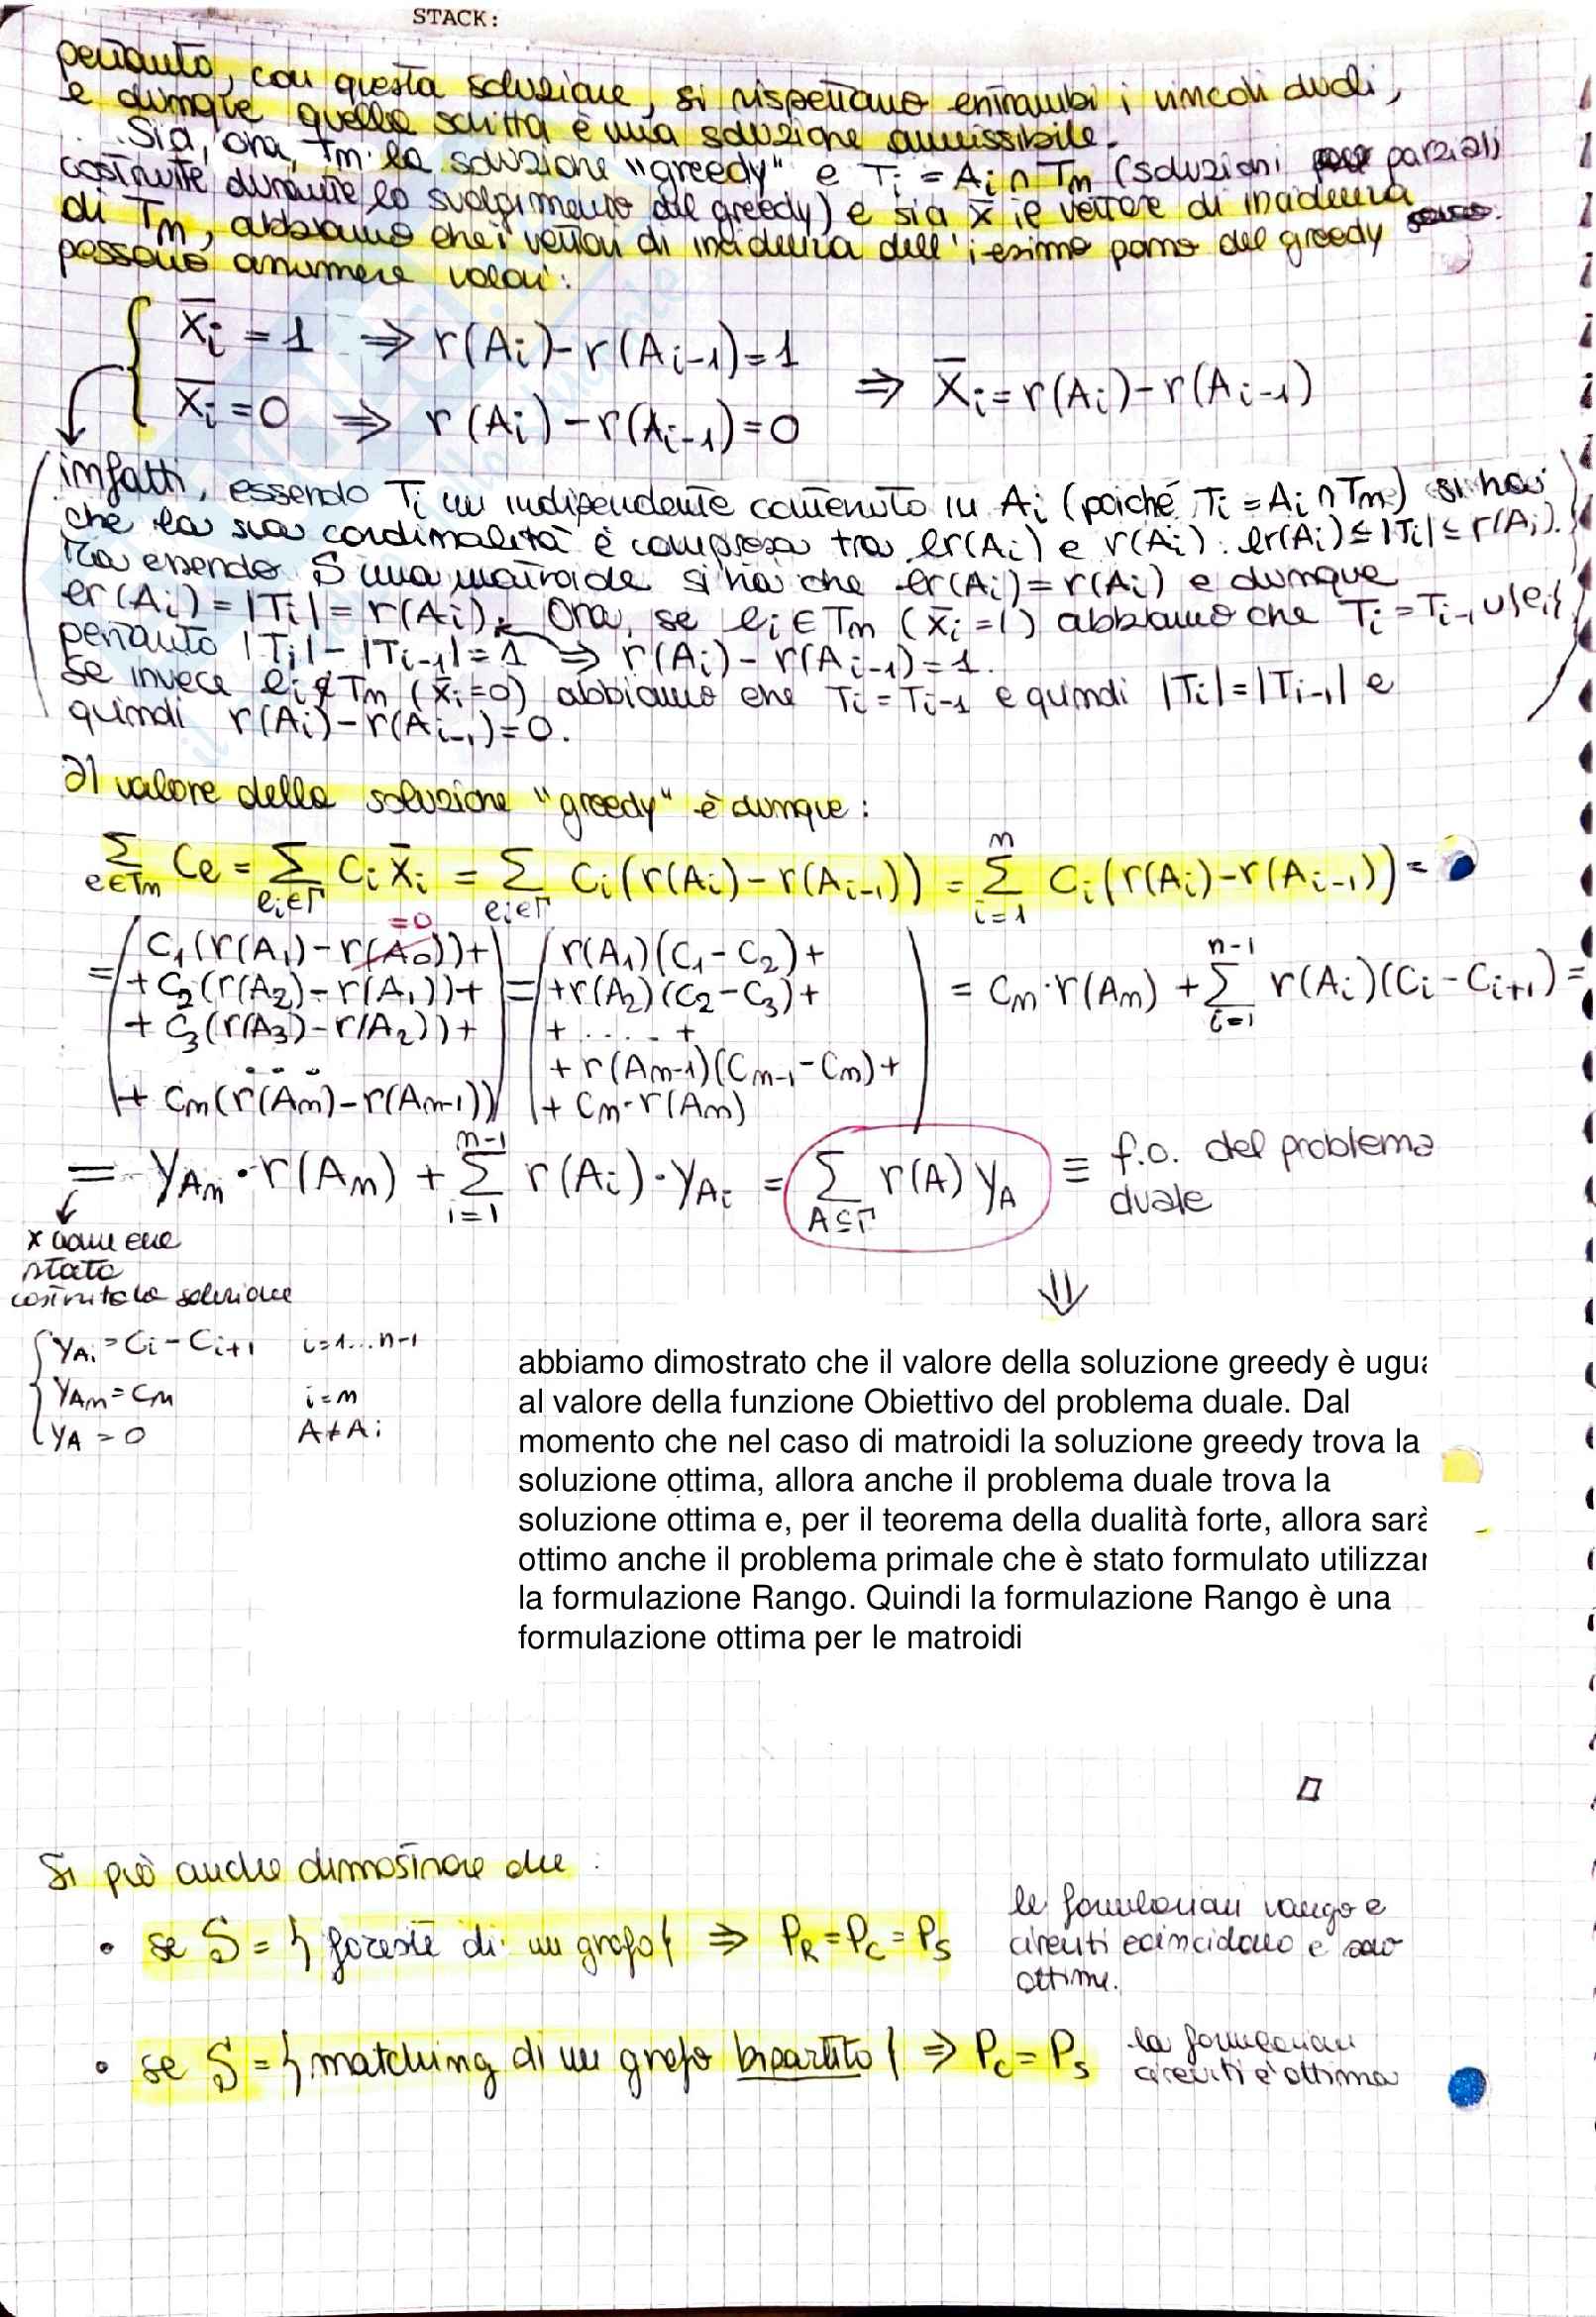 STACK:
pertanto, con questa soluzione, si rispettano entrambi i vincoli duali,
e dunque quella scritta è una soluzione ammissibile.
Sia, ora, Tn la soluzione "greedy" e Ti = Ai ∩ Tn (soluzioni parziali
costruite durante lo svolgimento del greedy) e sia x̄ il vettore di incidenza
di Tn, abbiamo che i vettori di incidenza dell'iesimo passo del greedy
possono assumere valori:
x̄i = 1 ⇒ r(Ai) - r(Ai-1) = 1
x̄i = 0 ⇒ r(Ai) - r(Ai-1) = 0
⇒ x̄i = r(Ai) - r(Ai-1)
infatti, essendo Ti un indipendente contenuto in Ai (poiché Ti = Ai ∩ Tn) si ha
che la sua cardinalità è compresa tra lr(Ai) e r(Ai): lr(Ai) ≤ |Ti| ≤ r(Ai).
Ma essendo S una matroide si ha che lr(Ai) = r(Ai) e dunque
lr(Ai) = |Ti| = r(Ai). Ora, se ei ∈ Tn (x̄i = 1) abbiamo che Ti = Ti-1 ∪ {ei}
pertanto |Ti| - |Ti-1| = 1 ⇒ r(Ai) - r(Ai-1) = 1.
Se invece ei ∉ Tn (x̄i = 0) abbiamo che Ti = Ti-1 e quindi |Ti| = |Ti-1| e
quindi r(Ai) - r(Ai-1) = 0.
Il valore della soluzione "greedy" è dunque:
∑ e∈Tn Ce = ∑ ei∈Γ Ci x̄i = ∑ ei∈Γ Ci (r(Ai) - r(Ai-1)) = ∑ i=1 n Ci (r(Ai) - r(Ai-1)) =
= ( C1 (r(A1) - r(A0)) + =0
+ C2 (r(A2) - r(A1)) +
+ C3 (r(A3) - r(A2)) +
...
+ Cn (r(An) - r(An-1)) )
= ( r(A1)(C1 - C2) +
+ r(A2)(C2 - C3) +
+ ..... +
+ r(An-1)(Cn-1 - Cn) +
+ Cn · r(An) )
= Cn · r(An) + ∑ i=1 n-1 r(Ai)(Ci - Ci+1) =
= yAn · r(An) + ∑ i=1 n-1 r(Ai) · yAi = ∑ A⊆Γ r(A) yA ≡ f.o. del problema
duale
x come era
stata
costruita la soluzione
yAi = Ci - Ci+1 i=1...n-1
yAn = Cn i=n
yA = 0 A≠Ai
⇓
abbiamo dimostrato che il valore della soluzione greedy è ugua
al valore della funzione Obiettivo del problema duale. Dal
momento che nel caso di matroidi la soluzione greedy trova la
soluzione ottima, allora anche il problema duale trova la
soluzione ottima e, per il teorema della dualità forte, allora sarà
ottimo anche il problema primale che è stato formulato utilizzan
la formulazione Rango. Quindi la formulazione Rango è una
formulazione ottima per le matroidi
Si può anche dimostrare che:
• se S = {foreste di un grafo} ⇒ PR = PC = PS
le formulazioni rango e
circuiti coincidono e sono
ottime.
• se S = {matching di un grafo bipartito} ⇒ PC = PS
la formulazione
circuiti è ottima